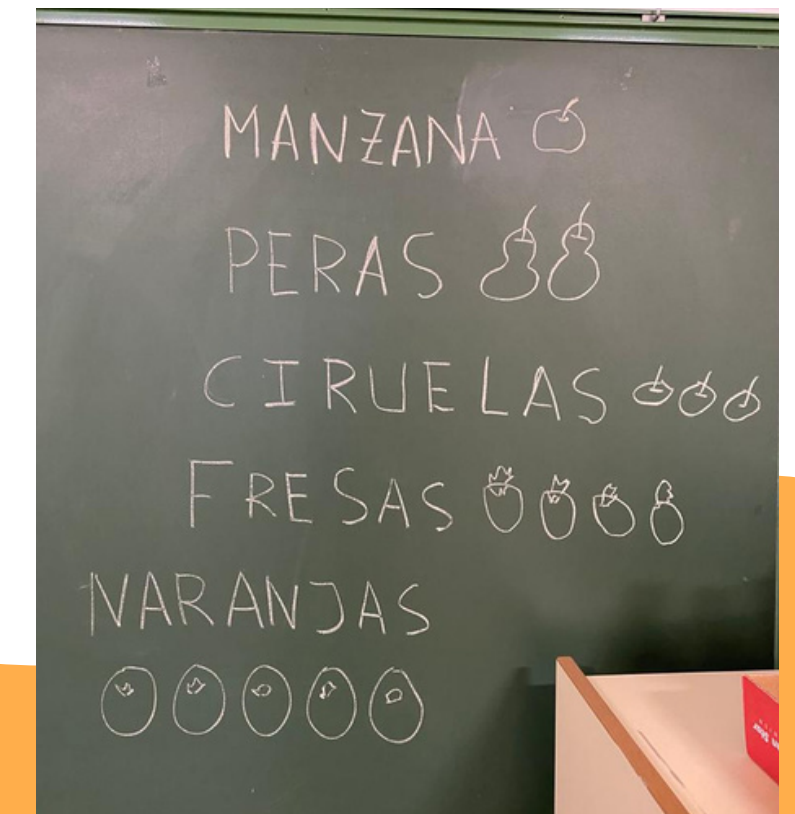 MANZANA
PERAS
CIRUELAS
FRESAS
NARANJAS